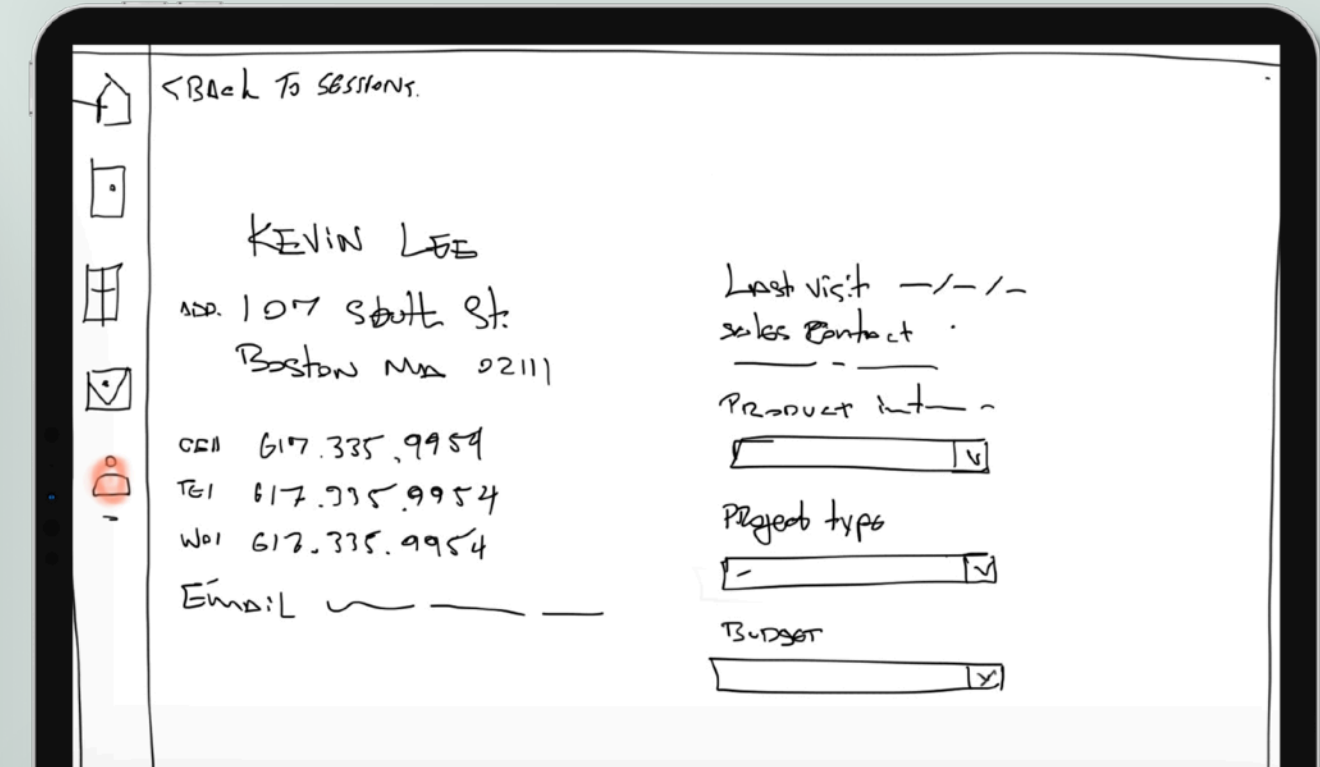 <BACK TO SESSIONS.
KEVIN LEE
ADD. 107 South St.
BOSTON MA 02111
CELL 617.335.9954
TEl 617.335.9954
WOl 617.335.9954
EMAIL
Last visit -/-/-
sales contact
PRODUCT int
Project type
BUDGET